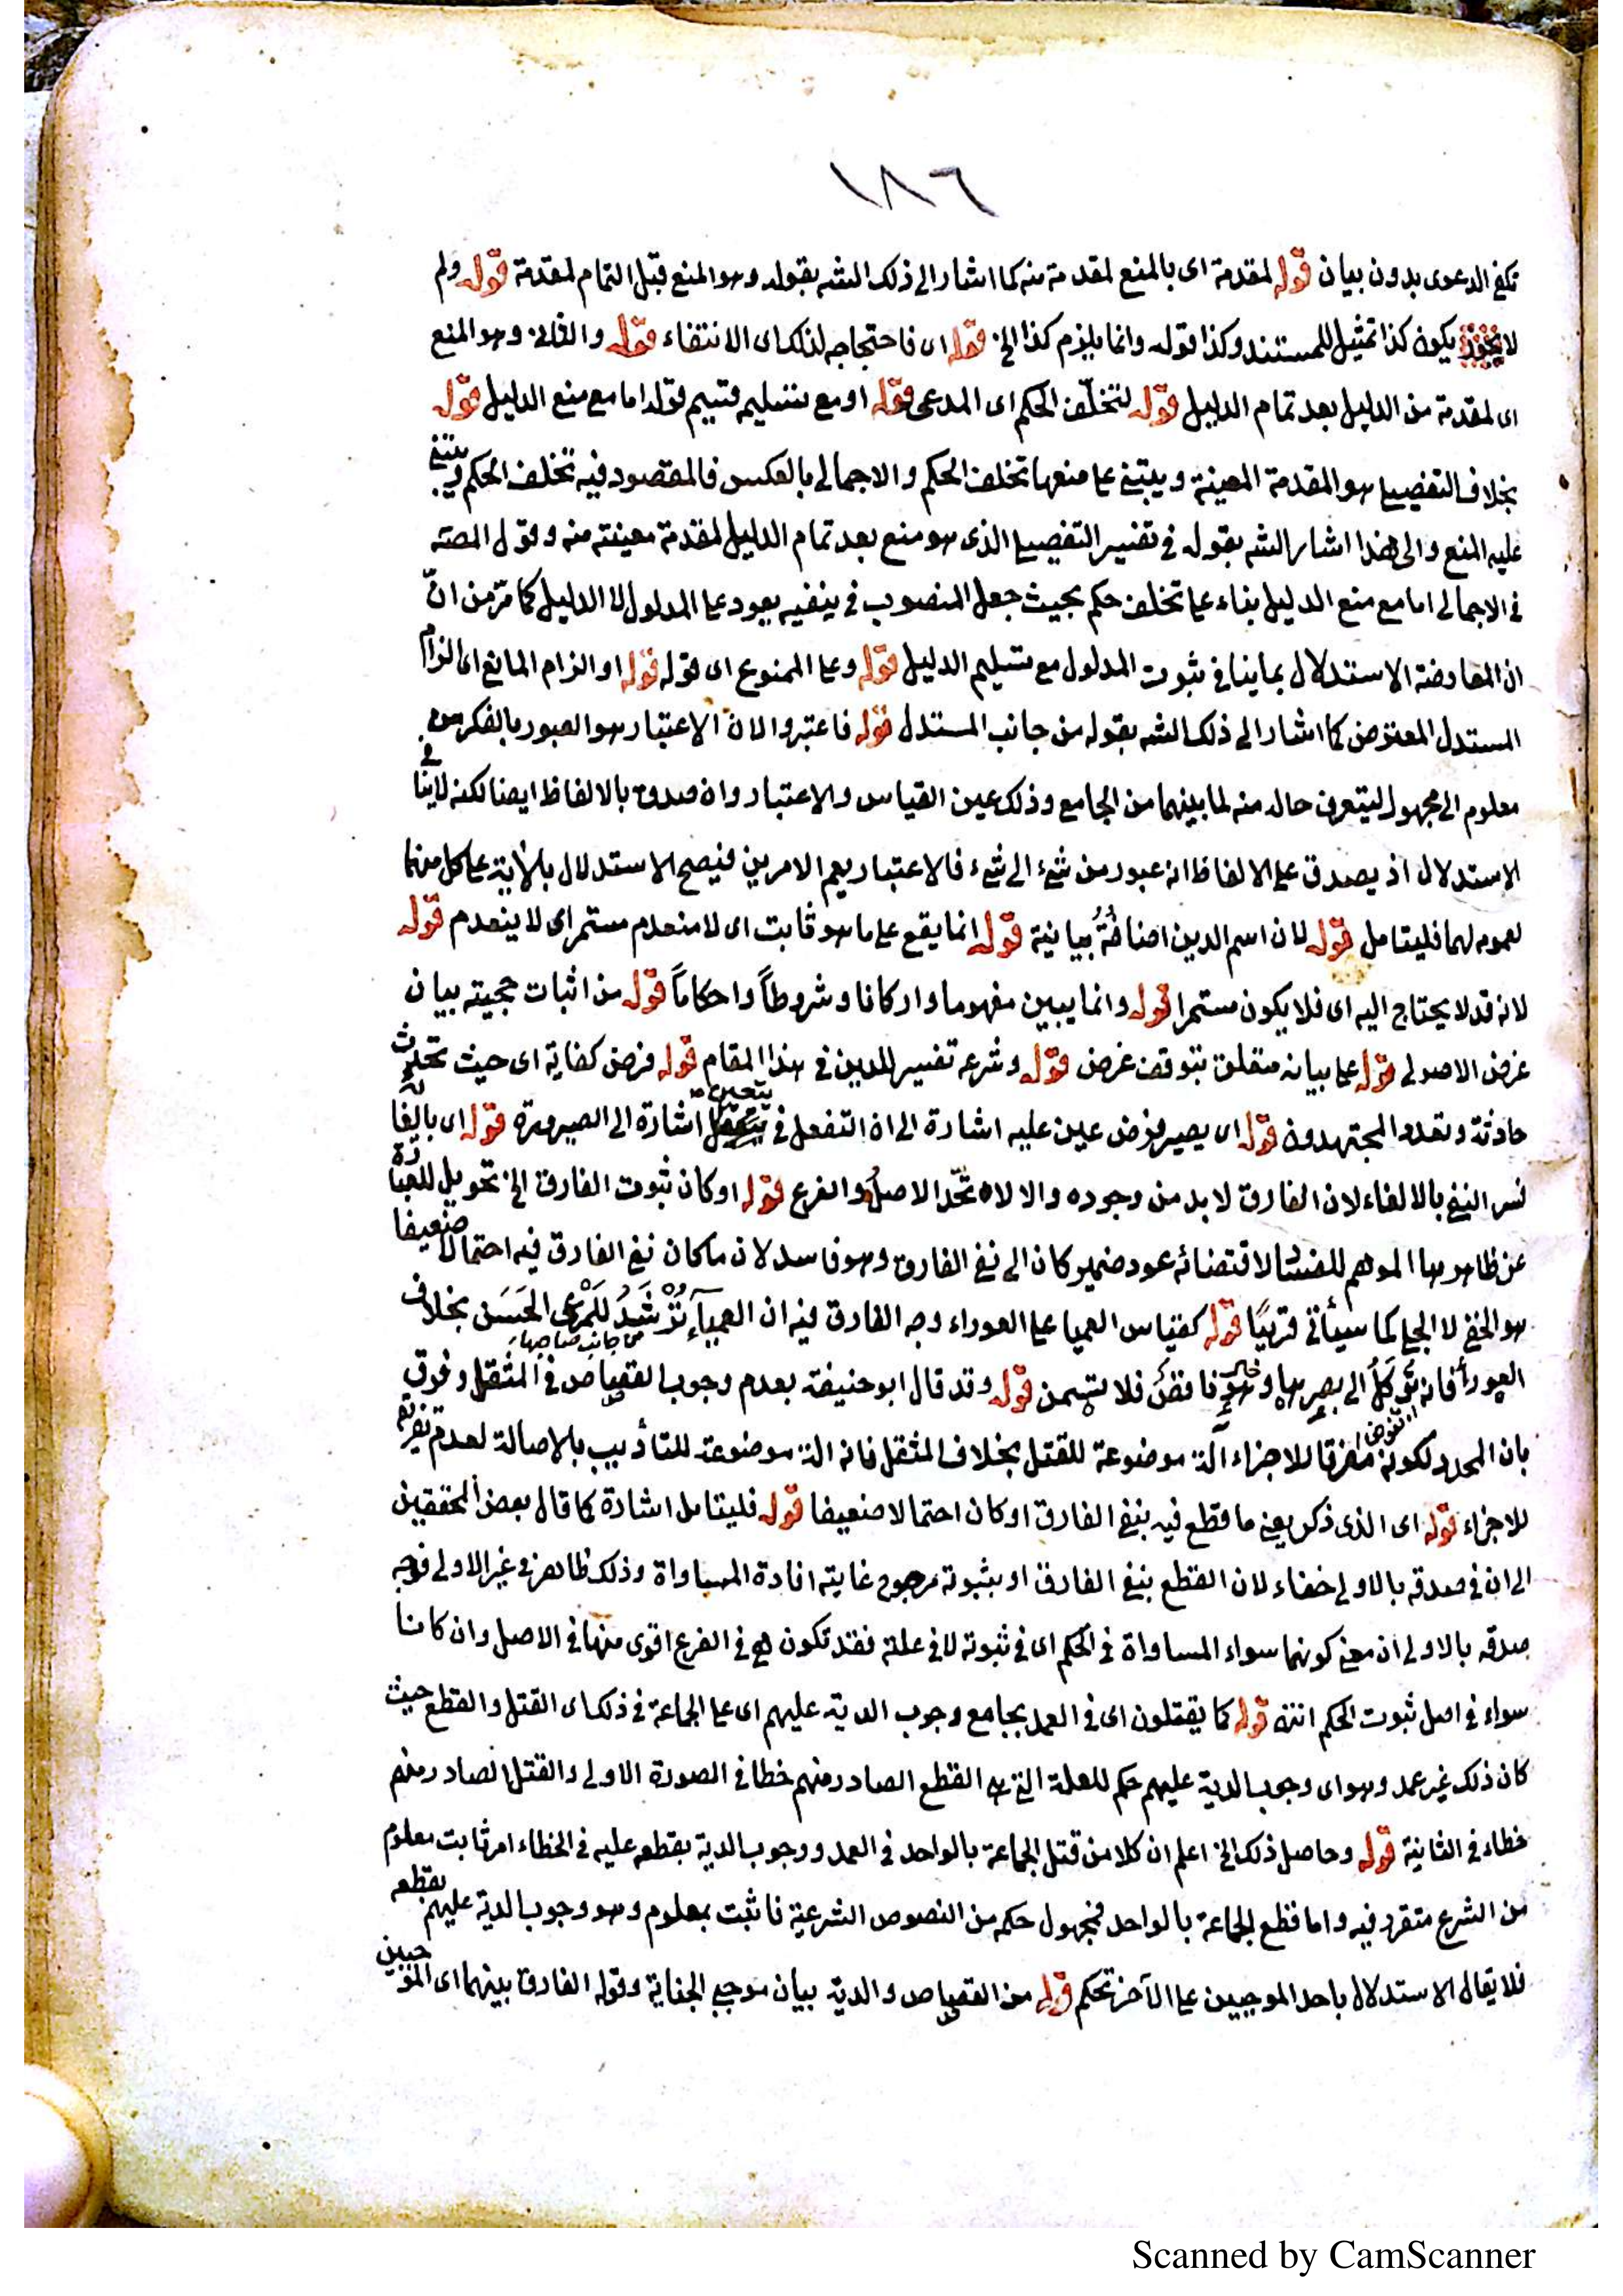 ١٨٦
تكفي الدعوى بدون بيان قوله لمقدمة اى بالمنع لمقدمة منه كما اشار الى ذلك الشه بقوله وهو المنع قبل التمام لمقدمة قوله ولم
لا يكون كذا تمثيل للمستند وكذا قوله وانما يلزم كذا الخ قوله اى فاحتجاجه لذلك اى الانتفاء قوله والثانى وهو المنع
اى لمقدمة من الدليل بعد تمام الدليل قوله لتخلّف الحكم اى المدعى قوله او مع تسليم قسيم قوله اما مع منع الدليل قوله
بخلاف التفصيلى هو المقدمة المعينة ويبتنى على منعها تخلف الحكم والاجمالى بالعكس فالمقصود فيه تخلف الحكم ويبتنى
عليه المنع والى هذا اشار الشه بقوله فى تفسير التفصيلى الذى هو منع بعد تمام الدليل لمقدمة معينة منه وقول المصنه
فى الاجمالى اما مع منع الدليل بناء على تخلف حكم بحيث جعل المنصوب فى ينفيه يعود على المدلول لا الدليل كما مرّ من انّ
ان المعارضة الاستدلال بما ينافى ثبوت المدلول مع تسليم الدليل قوله وعلى الممنوع اى قوله قوله او الزام المانع اى الزام
المستدل المعترض كما اشار الى ذلك الشه بقوله من جانب المستدل قوله فاعتبروا لان الاعتبار هو العبور بالفكر من
معلوم الى مجهول ليتعرف حاله منه لما بينهما من الجامع وذلك عين القياس والاعتبار وان صدق بالالفاظ ايضا لكنه لا ينافى
الاستدلال اذ يصدق على الالفاظ انه عبور من شئ الى شئ فالاعتبار يعم الامرين فيصح الاستدلال بالآية على كل منهما
لعمومه لهما فليتامل قوله لان اسم الدين اضافةٌ بيانية قوله انما يقع على ما هو ثابت اى لا منعدم مستمر اى لا ينعدم قوله
لانه قد لا يحتاج اليه اى فلا يكون مستمرا قوله وانما يبين مفهوما واركانا وشروطاً واحكاماً قوله من اثبات حجيته بيان
غرض الاصولى قوله على بيانه متعلق بتوقف غرض قوله وشرعه تفسير للدين فى هذا المقام قوله فرض كفاية اى حيث تحدث
حادثة وتعدد المجتهدون قوله اى يصير فرض عين عليه اشارة الى ان التفعل فى يتعين اشارة الى الصيرورة قوله اى بالغائه
فسر النفى بالالغاء لان الفارق لا بد من وجوده والا لاتحد الاصل والفرع قوله او كان ثبوت الفارق الخ تحويل للعبارة
عن ظاهرها الموهم للفساد لاقتضائه عود ضمير كان الى نفى الفارق وهو فاسد لان ما كان نفى الفارق فيه احتمالا ضعيفا
هو الخفى لا الجلى كما سيأتى قريبًا قوله كقياس العميا على العوراء وجه الفارق فيه ان العمياء تُرْشَدُ للمَرْعى الحَسَن بخلاف
من جانب صاحبها
العوراء فانه تُوكَلُ الى بصرها وهو ناقص فلا يتسمن قوله وقد قال ابو حنيفة بعدم وجوب القصاص فى المثقل وفرق
بان المحدد لكونه مفرقا للاجزاء آلة موضوعة للقتل بخلاف المثقل فانه آلة موضوعة للتأديب بالاصالة لعدم تفريقه
للاجزاء قوله اى الذى ذكر يعنى ما قطع فيه بنفى الفارق او كان احتمالا ضعيفا قوله فليتامل اشارة كما قال بعض المحققين
الى ان فى صدقه بالاولى خفاء لان القطع بنفى الفارق او بثبوته مرجوح غايته افادة المساواة وذلك ظاهر فى غير الاولى فوجه
صدقه بالاولى ان معنى كونهما سواء المساواة فى الحكم اى فى ثبوته لا فى علته فقد تكون هى فى الفرع اقوى منها فى الاصل وان كانا
سواء فى اصل ثبوت الحكم انته قوله كما يقتلون اى فى العمد بجامع وجوب الدية عليهم اى على الجماعة فى ذلك اى القتل والقطع حيث
كان ذلك غير عمد وهو اى وجوب الدية عليهم حكم للعلة التى هى القطع الصادر منهم خطا فى الصورة الاولى والقتل الصادر منهم
خطاء فى الثانية قوله وحاصل ذلك الخ اعلم ان كلا من قتل الجماعة بالواحد فى العمد ووجوب الدية بقطعه عليه فى الخطاء امر ثابت معلوم
من الشرع متقرر فيه واما قطع الجماعة بالواحد فمجهول حكمه من النصوص الشرعية فاثبت بمعلوم وهو وجوب الدية عليهم بقطعه
فلا يقال الاستدلال باحد الموجبين على الآخر تحكم قوله من القصاص والدية بيان موجبى الجناية وقوله الفارق بينهما اى الموجبين
Scanned by CamScanner